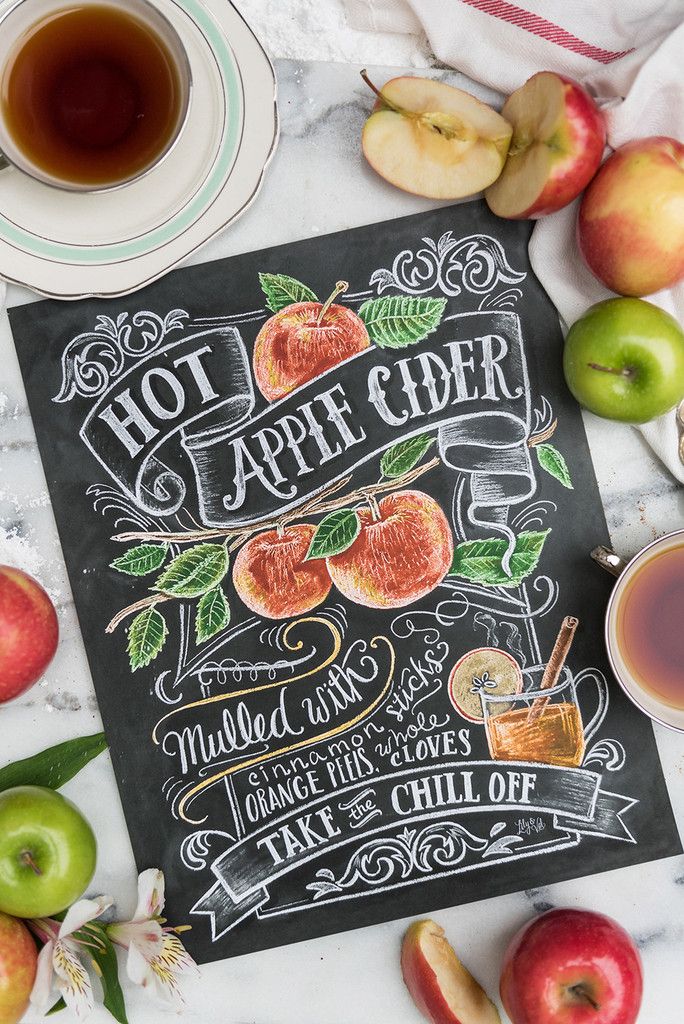 HOT
APPLE CIDER
Mulled with
cinnamon sticks
ORANGE PEELS, whole
CLOVES
TAKE the CHILL OFF
Lily & Val